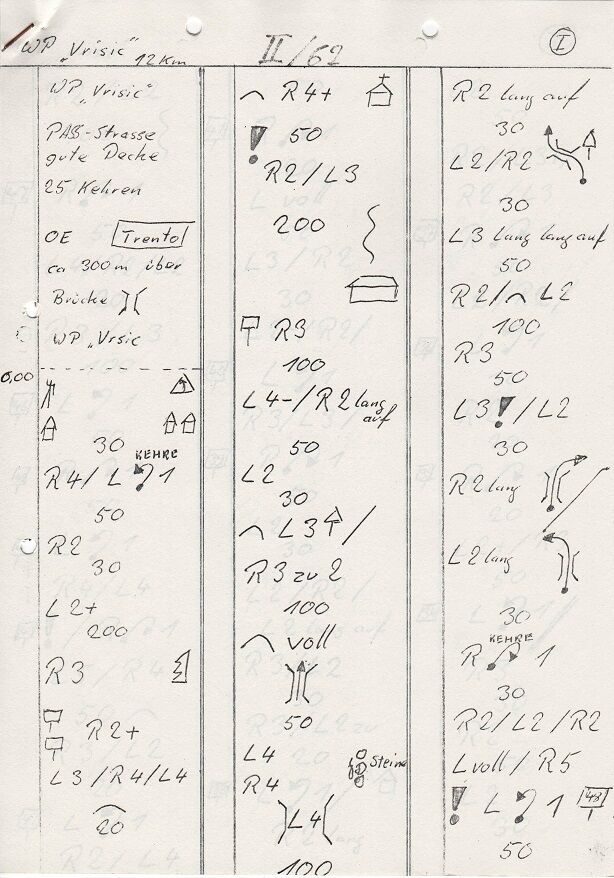 WP "Vrisic" 12Km
II/62
I
WP "Vrisic"
PASS-Strasse
gute Decke
25 Kehren
OE Trenta
ca 300m über
Brücke
WP "Vrsic
0,00
30
KEHRE
R4/L 1
50
R2
30
L2+
200
R3
R2+
L3/R4/L4
20
R4+
! 50
R2/L3
200
R3
100
L4-/R2 lang
auf
50
L2
30
L3 /
R3 zu 2
100
voll
50
L4
Steine
R4
L4
100
R2 lang auf
30
L2/R2
30
L3 lang lang auf
50
R2/ L2
100
R3
50
L3!/L2
30
R2 lang
L2 lang
30
KEHRE
R 1
30
R2/L2/R2
L voll/R5
! L 1 48
50